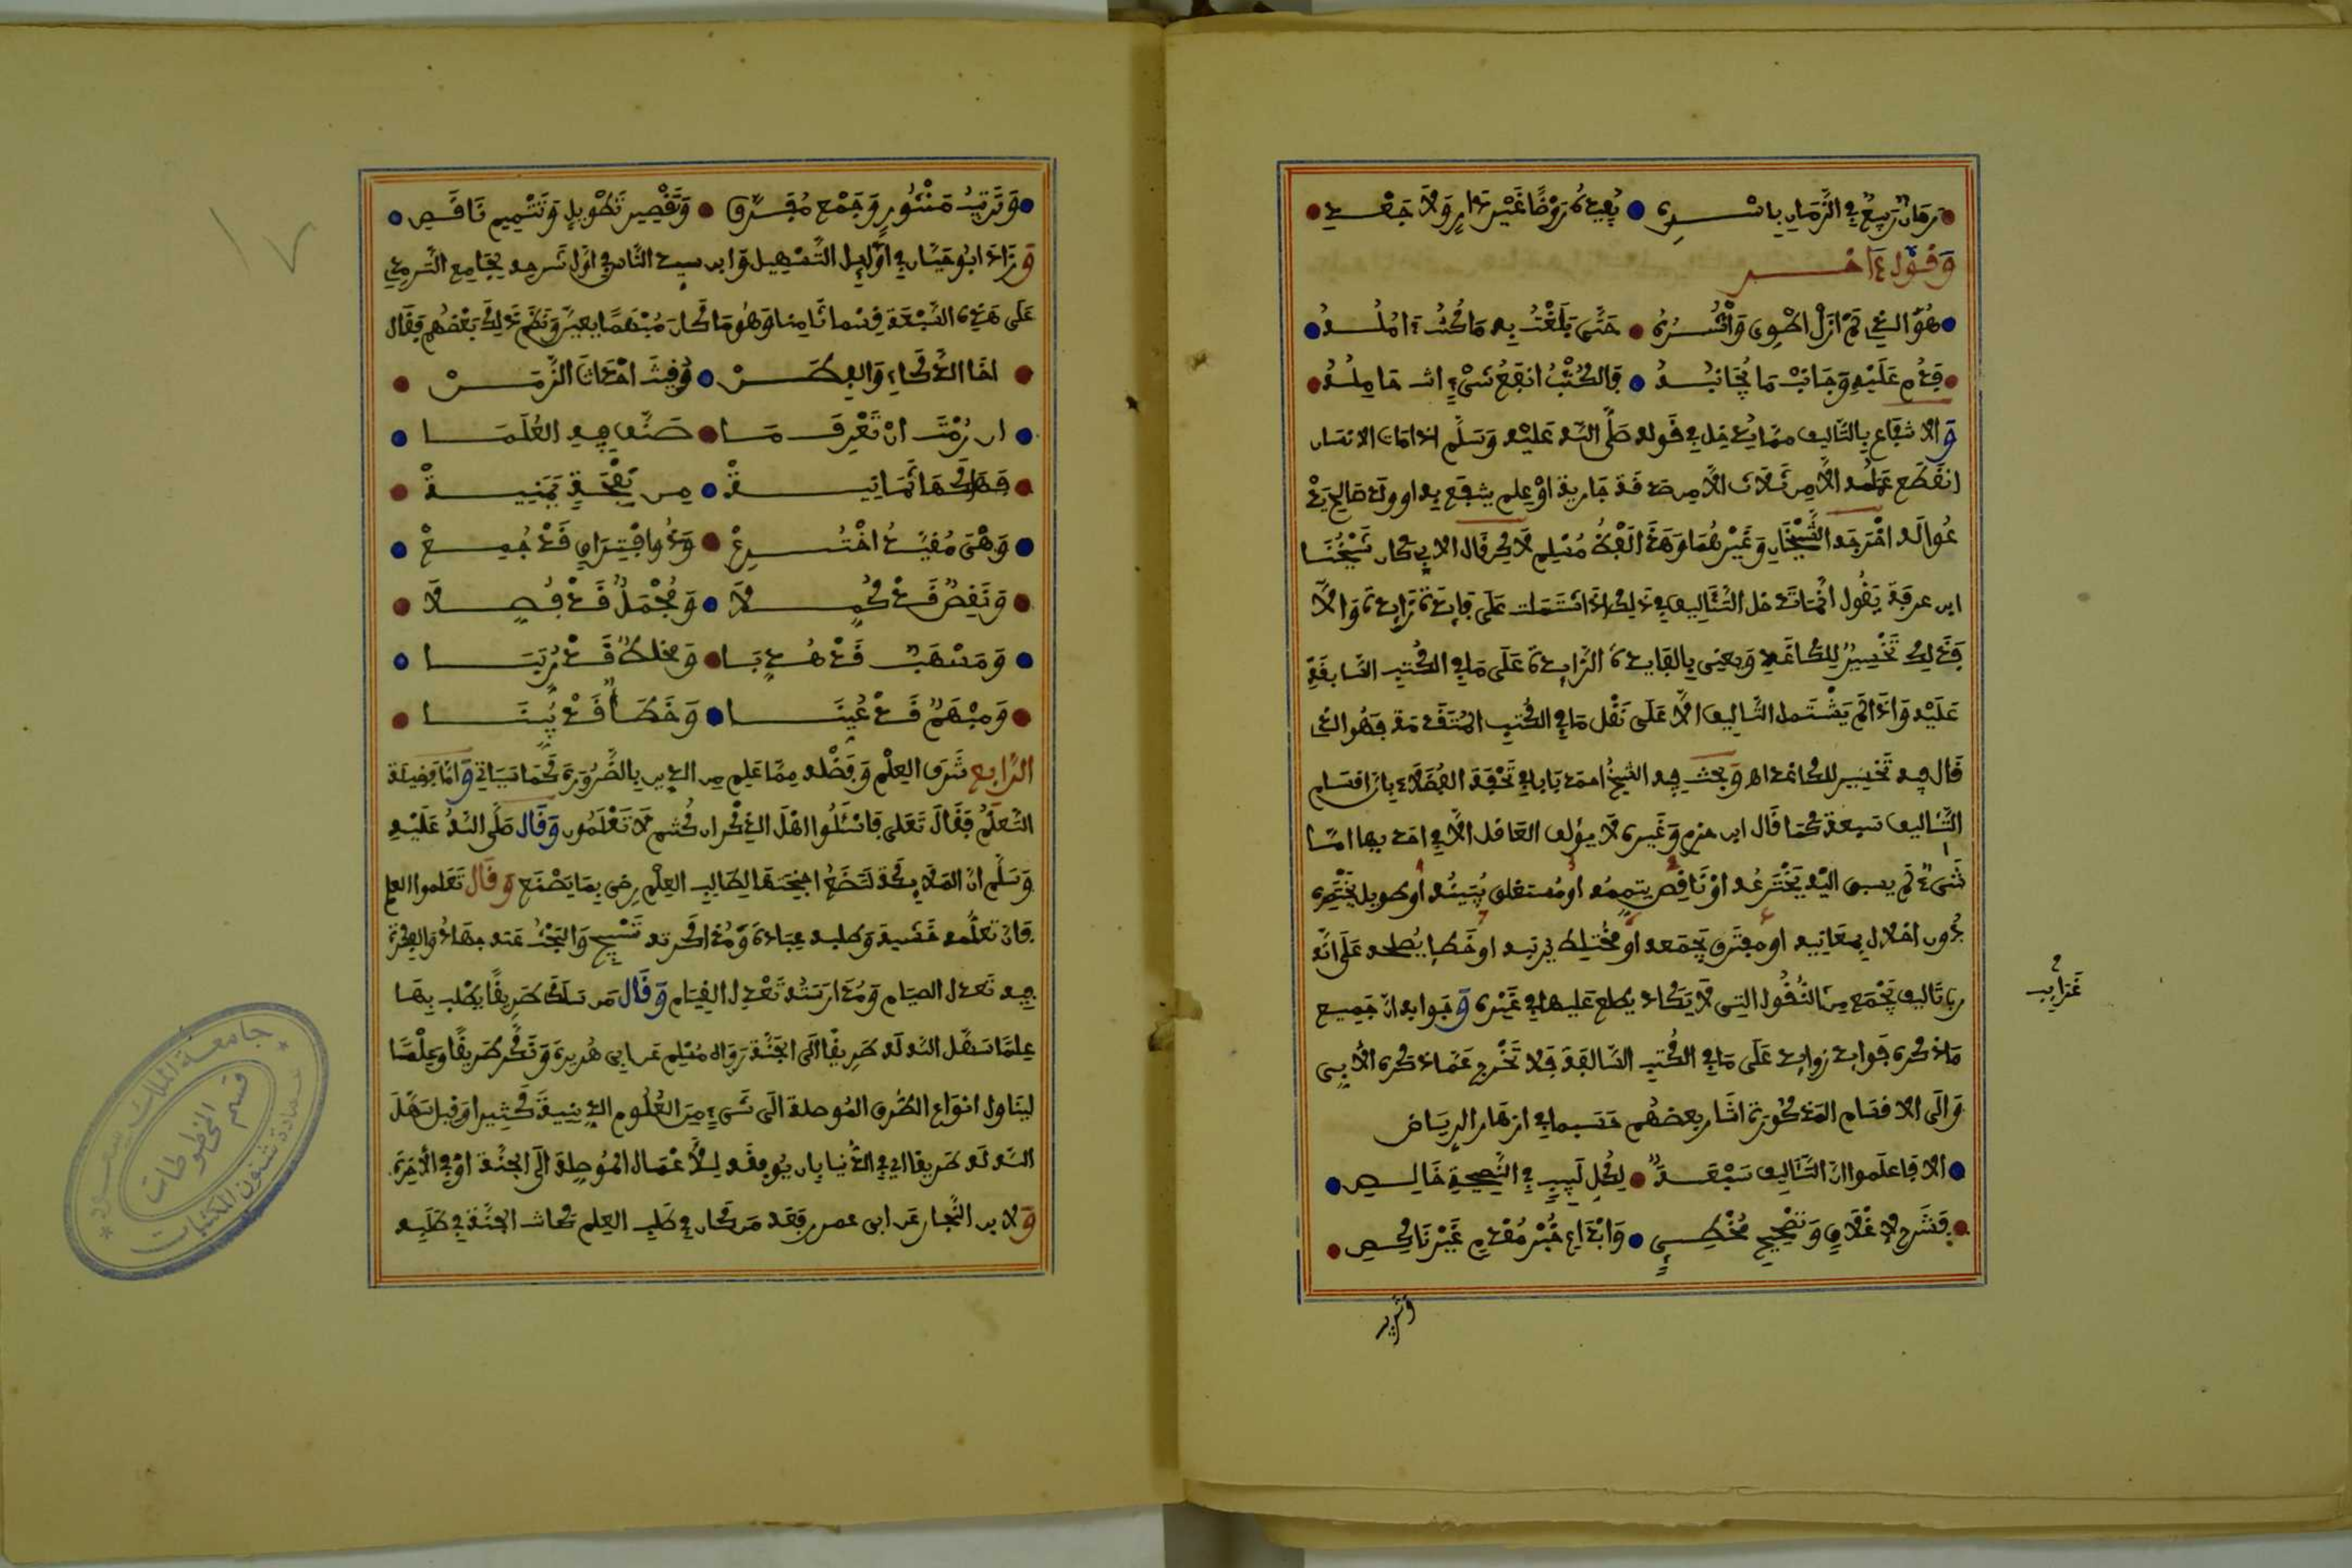 زمان ربيع في الزمان باسره • يفيدك روضا غير ذاو ولا جعد
وقول ءاخر
هو الذي لم ازل اطوي وانشره • حتى بلغت به ما كنت ءامله
فدم عليه وجانب ما يجانبه • فالكتب انفع شيء انت حامله
والانتفاع بالتاليف مما يدخل في قوله صلى الله عليه وسلم اذا مات الانسان
انقطع عمله الا من ثلاث الا من صدقة جارية او علم ينتفع به او ولد صالح يد
عوا له اخرجه الشيخان وغيرهما وهذا لفظ مسلم لاكن قال الابي كان شيخنا
ابن عرفة يقول انما تدخل التئاليف في ذلك اذا اشتملت على فايدة زايدة والا
فذلك تخسير للكاغد ويعنى بالفايدة الزايدة على ما في الكتب السابقة
عليه واذا لم يشتمل التاليف الا على نقل ما في الكتب المتقدمة فهو الذي
قال فيه تخسير للكاغد اه وبحث فيه الشيخ احمد بابا في تحفة الفضلاء بان اقسام
التئاليف سبعة كما قال ابن حزم وغيره لا يؤلف العاقل الا في احد بها اما
شيء لم يسبق اليه يخترعه او ناقص يتممه او مستغلق يبينه او طويل يختصره
دون اخلال بمعانيه او مفترق يجمعه او مختلط يرتبه او خطا يصلحه على انه
رب تاليف يجمع من النقول التي لا يكاد يطلع عليها في غيره وجوابه ان جميع
غرايب
ما ذكره فوايد زوايد على ما في الكتب السالفة فلا تخرج عما ذكره الابي
والى الاقسام المذكورة اشار بعضهم حسبما في ازهار الرياض
الا فاعلموا ان التئاليف سبعة • لكل لبيب في النصيحة خالص
فشرح لاغلاق وتصحيح مخطئ • وابداع حبر مقدم غير ناكص
وترتيب
وترتيب منثور وجمع مفرق • وتقصير تطويل وتتميم ناقص
وزاد ابو حيان في اوايل التسهيل وابن سيد الناس في اول شرحه لجامع الترمذي
على هذه السبعة قسما ثامنا وهو ما كان مبهما يعين ونظم ذلك بعضهم فقال
اخا الذكاء والفطن • وقيت احداث الزمن
ان رمت ان تعرف ما • صنف فيه العلما
فهاكها ثمانية • من نفحة يمنية
وهي مفيد اخترع • وذو افتراق قد جمع
ونقص قد كملا • ومجمل قد فصلا
ومسهب قد هذبا • ومخلط قد رتبا
ومبهم قد عينا • وخطا قد بينا
الرابع شرف العلم وفضله مما علم من الدين بالضرورة كما سياتي واما فضيلة
التعلم فقال تعلى فاسئلوا اهل الذكر ان كنتم لا تعلمون وقال صلى الله عليه
وسلم ان الملائكة لتضع اجنحتها لطالب العلم رضى بما يصنع وقال تعلموا العلم
فان تعلمه خشية وطلبه عبادة ومذاكرته تسبيح والبحث عنه جهاد والفكرة
فيه تعدل الصيام ومدارسته تعدل القيام وقال من سلك طريقا يطلب بها
علما سهل الله له طريقا الى الجنة رواه مسلم عن ابي هريرة ونكر طريقا وعلما
ليتناول انواع الطرق الموصلة الى شيء من العلوم الدينية كثيرا وقيل سهل
الله له طريقا اي في الدنيا بان يوفقه للاعمال الموصلة الى الجنة او في الاخرة
ولابن النجار عن ابي عمر رفعه من كان في طلب العلم كانت الجنة في طلبه
جامعة الملك سعود
عمادة شئون المكتبات
قسم المخطوطات
١٧